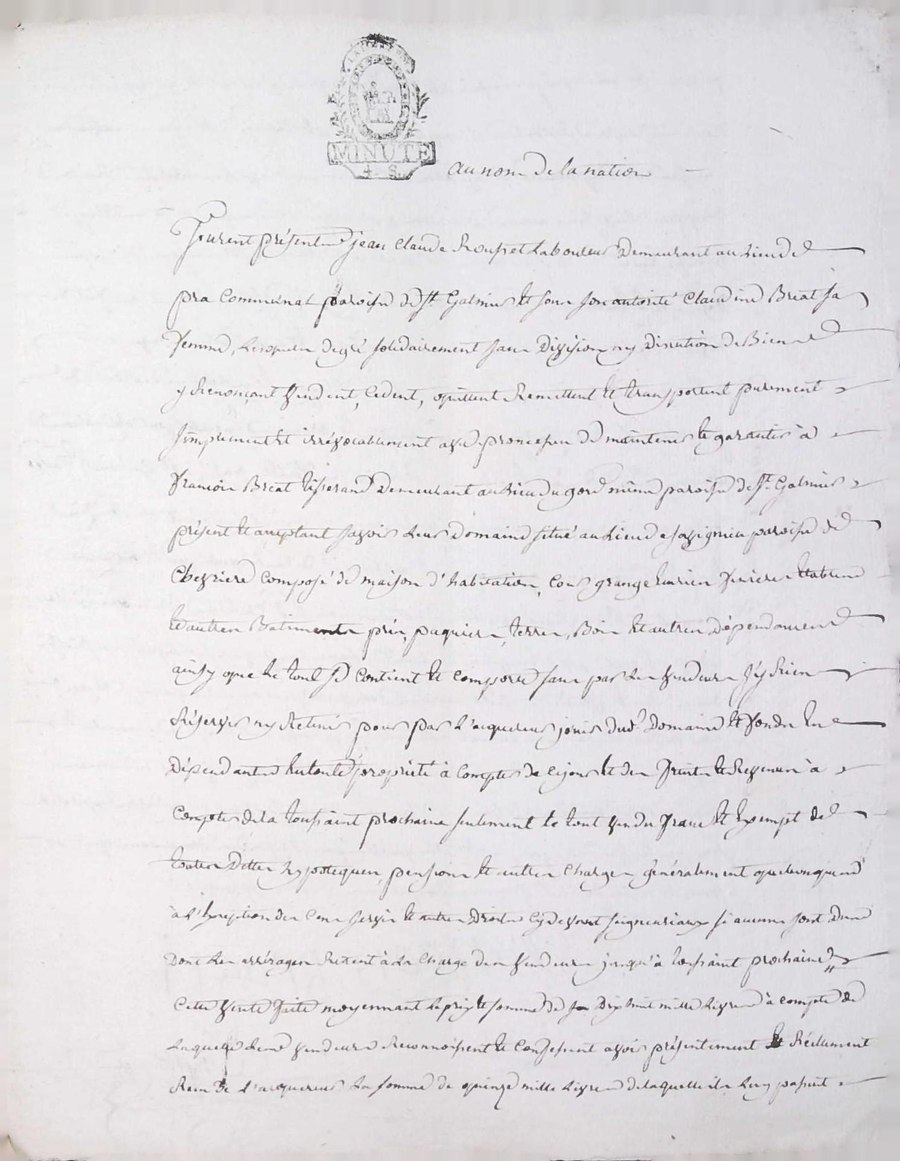 MINUTE
4. S.
au nom de la nation
furent présents jean Claude demeurant au lieu de
pra Communal paroisse de St Galmier et sous son autorité Claudine Breat sa
femme, lesquels de gré solidairement sans Division ny Discution de Biens
y Renonçant vendent, Cedent, quittent Remettent et transportent purement
simplement et irrévocablement avec promesse de maintenir et garantir à
francois Breat tisserand Demeurant au lieu du même paroisse de St Galmier
présent et acceptant savoir leur Domaine situé au lieu de paroisse de
Chevriere composé de maison d'habitation, Cour grange écuries et
et autres Batiments prés, paquiers, terres, Bois et autres Dépendances
ainsy que le tout se Contient et comporte sans par les vendeurs s'y Rien
Réserver ny Retenir pour par l'acquereur jouir dud. Domaine et fonds en
Dépendants en toute propriété à Compter de ce jour et des fruits et Revenus à
Compter de la toussaint prochaine seulement le tout vendu franc et Exempt de
toutes Dettes hypoteques, pensions et autres Charges généralement quelconques
à l'Exception des Cens servis et autres Droits cy devant seigneuriaux si aucuns sont dus
Dont les arrérages Restent à la Charge des vendeurs jusqu'à toussaint prochaine
Cette vente faite moyennant le prix et somme de Dix huit mille Livres à compte de
laquelle les vendeurs Reconnoissent et Confessent avoir présentement et Réellement
Reçu de l'acquereur la somme de quinze mille Livres de laquelle ils le